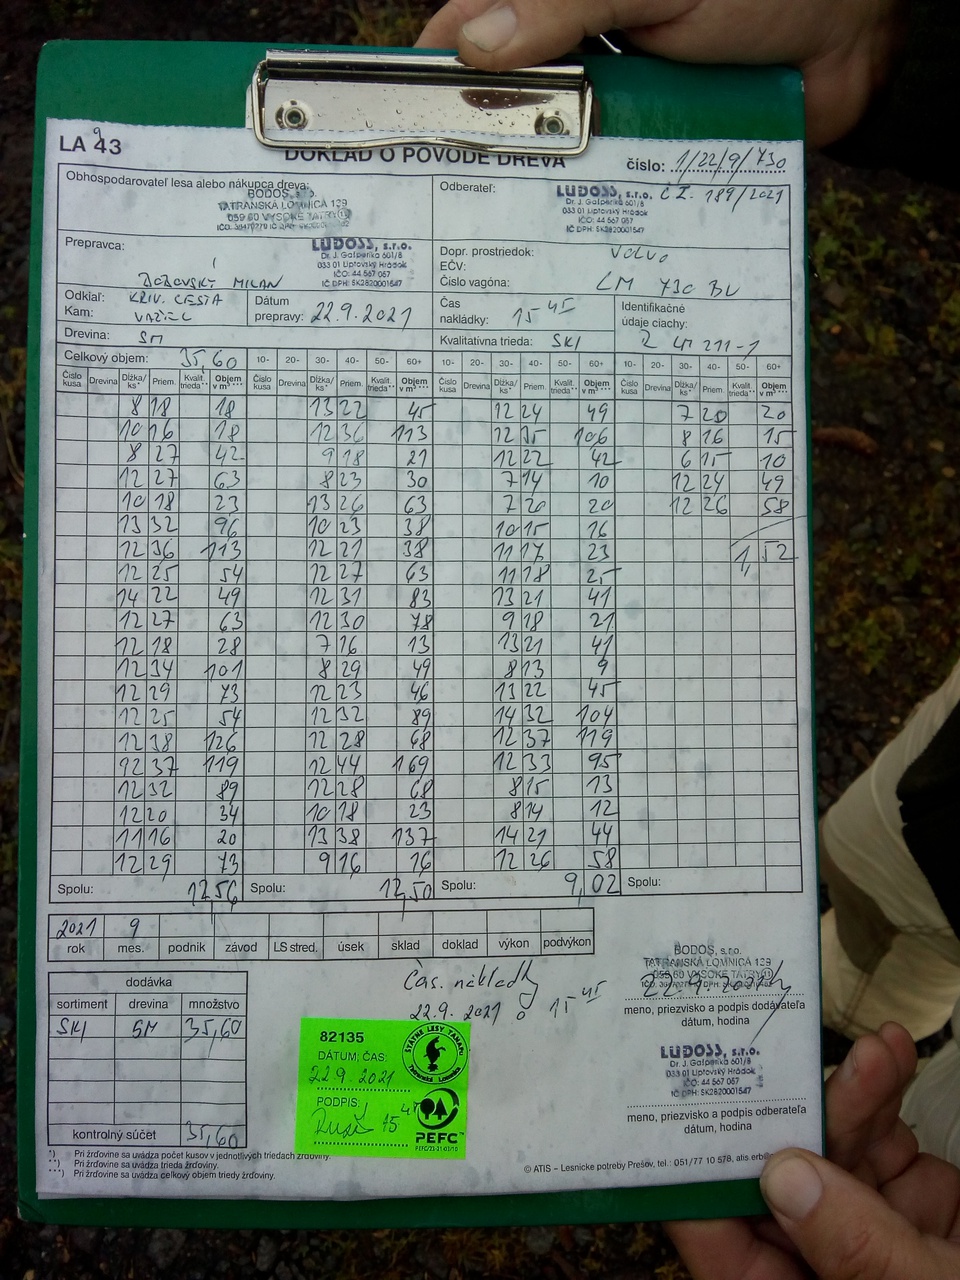 LA 43
DOKLAD O PÔVODE DREVA
číslo: 1/22/9/730
Obhospodarovateľ lesa alebo nákupca dreva:
BODOS, s.r.o.
TATRANSKÁ LOMNICA 129
059 60 VYSOKÉ TATRY
Odberateľ:
LUDOSS, s.r.o. č Z. 189/2021
Dr. J. Gašperíka 601/8
033 01 Liptovský Hrádok
IČO: 44 567 057
IČ DPH: SK2820001547
Prepravca:
LUDOSS, s.r.o.
Dr. J. Gašperíka 601/8
033 01 Liptovský Hrádok
IČO: 44 567 057
IČ DPH: SK2820001547
MILAN
Dopr. prostriedok: Volvo
EČV:
Číslo vagóna: LM 730 BU
Odkiaľ: KRIV. CESTA
Kam: VAŽEC
Dátum prepravy: 22.9.2021
Čas nakládky: 15 45
Identifikačné údaje ciachy: 2 LM 211-1
Drevina: SM
Kvalitatívna trieda: SKI
Celkový objem: 35,60
10- 20- 30- 40- 50- 60+ 10- 20- 30- 40- 50- 60+ 10- 20- 30- 40- 50- 60+
Číslo kusa Drevina Dĺžka/ ks* Priem. Kvalit. trieda** Objem v m³*** Číslo kusa Drevina Dĺžka/ ks* Priem. Kvalit. trieda** Objem v m³*** Číslo kusa Drevina Dĺžka/ ks* Priem. Kvalit. trieda** Objem v m³*** Číslo kusa Drevina Dĺžka/ ks* Priem. Kvalit. trieda** Objem v m³***
8 18 18 13 22 45 12 24 49 7 20 20
10 16 18 12 36 113 12 35 106 8 16 15
8 27 42 9 18 21 12 22 42 6 15 10
12 27 63 8 23 30 7 14 10 12 24 49
10 18 23 13 26 63 7 20 20 12 26 58
13 32 96 10 23 38 10 15 16
12 36 113 12 21 38 11 17 23 1,52
12 25 54 12 27 63 11 18 25
14 22 49 12 31 83 13 21 41
12 27 63 12 30 78 9 18 21
12 18 28 7 16 13 13 21 41
12 34 101 8 29 49 8 13 9
12 29 73 12 23 46 13 22 45
12 25 54 12 32 89 14 32 104
12 38 126 12 28 68 12 37 119
92 37 119 12 44 169 12 33 95
12 32 89 12 28 68 8 15 13
12 20 34 10 18 23 8 14 12
11 16 20 13 38 137 14 21 44
12 29 73 9 16 16 12 26 58
Spolu: 12,56 Spolu: 12,50 Spolu: 9,02 Spolu:
2021 9
rok mes. podnik závod LS stred. úsek sklad doklad výkon podvýkon
dodávka
sortiment drevina množstvo
SKI SM 35,60
kontrolný súčet 35,60
Čas. nákladky
22.9.2021 15 45
82135
DÁTUM, ČAS:
22.9.2021
PODPIS:
15 45
ŠTÁTNE LESY TANAPu
Tatranská Lomnica
PEFC
BODOS, s.r.o.
TATRANSKÁ LOMNICA 129
059 60 VYSOKÉ TATRY
meno, priezvisko a podpis dodávateľa
dátum, hodina
LUDOSS, s.r.o.
Dr. J. Gašperíka 601/8
033 01 Liptovský Hrádok
IČO: 44 567 057
IČ DPH: SK2820001547
meno, priezvisko a podpis odberateľa
dátum, hodina
*) Pri žrďovine sa uvádza počet kusov v jednotlivých triedach žrďoviny.
**) Pri žrďovine sa uvádza trieda žrďoviny.
***) Pri žrďovine sa uvádza celkový objem triedy žrďoviny.
© ATIS – Lesnícke potreby Prešov, tel.: 051/77 10 578, atis.erb@